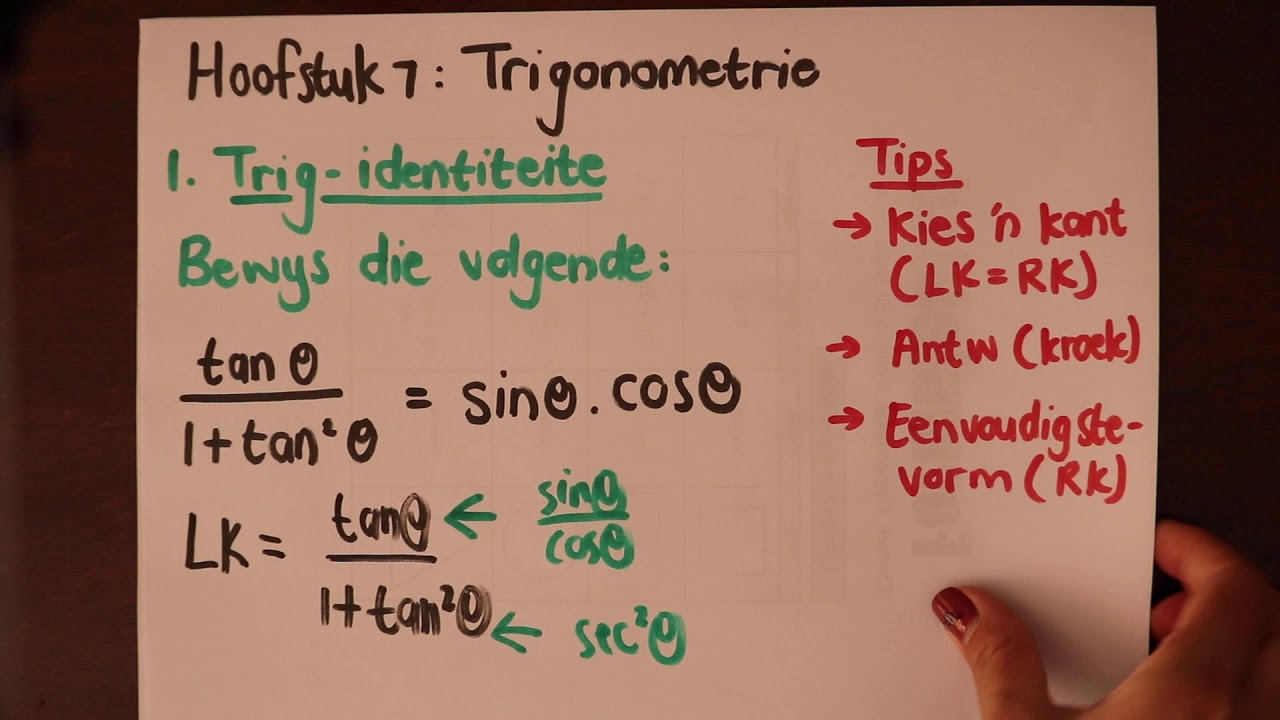 Hoofstuk 7: Trigonometrie
1. Trig-identiteite
Bewys die volgende:
tan θ
1+tan²θ
= sinθ . cosθ
LK = tanθ ← sinθ
cosθ
1+tan²θ ← sec²θ
Tips
→ Kies 'n kant
(LK = RK)
→ Antw (kroek)
→ Eenvoudigste-
vorm (RK)